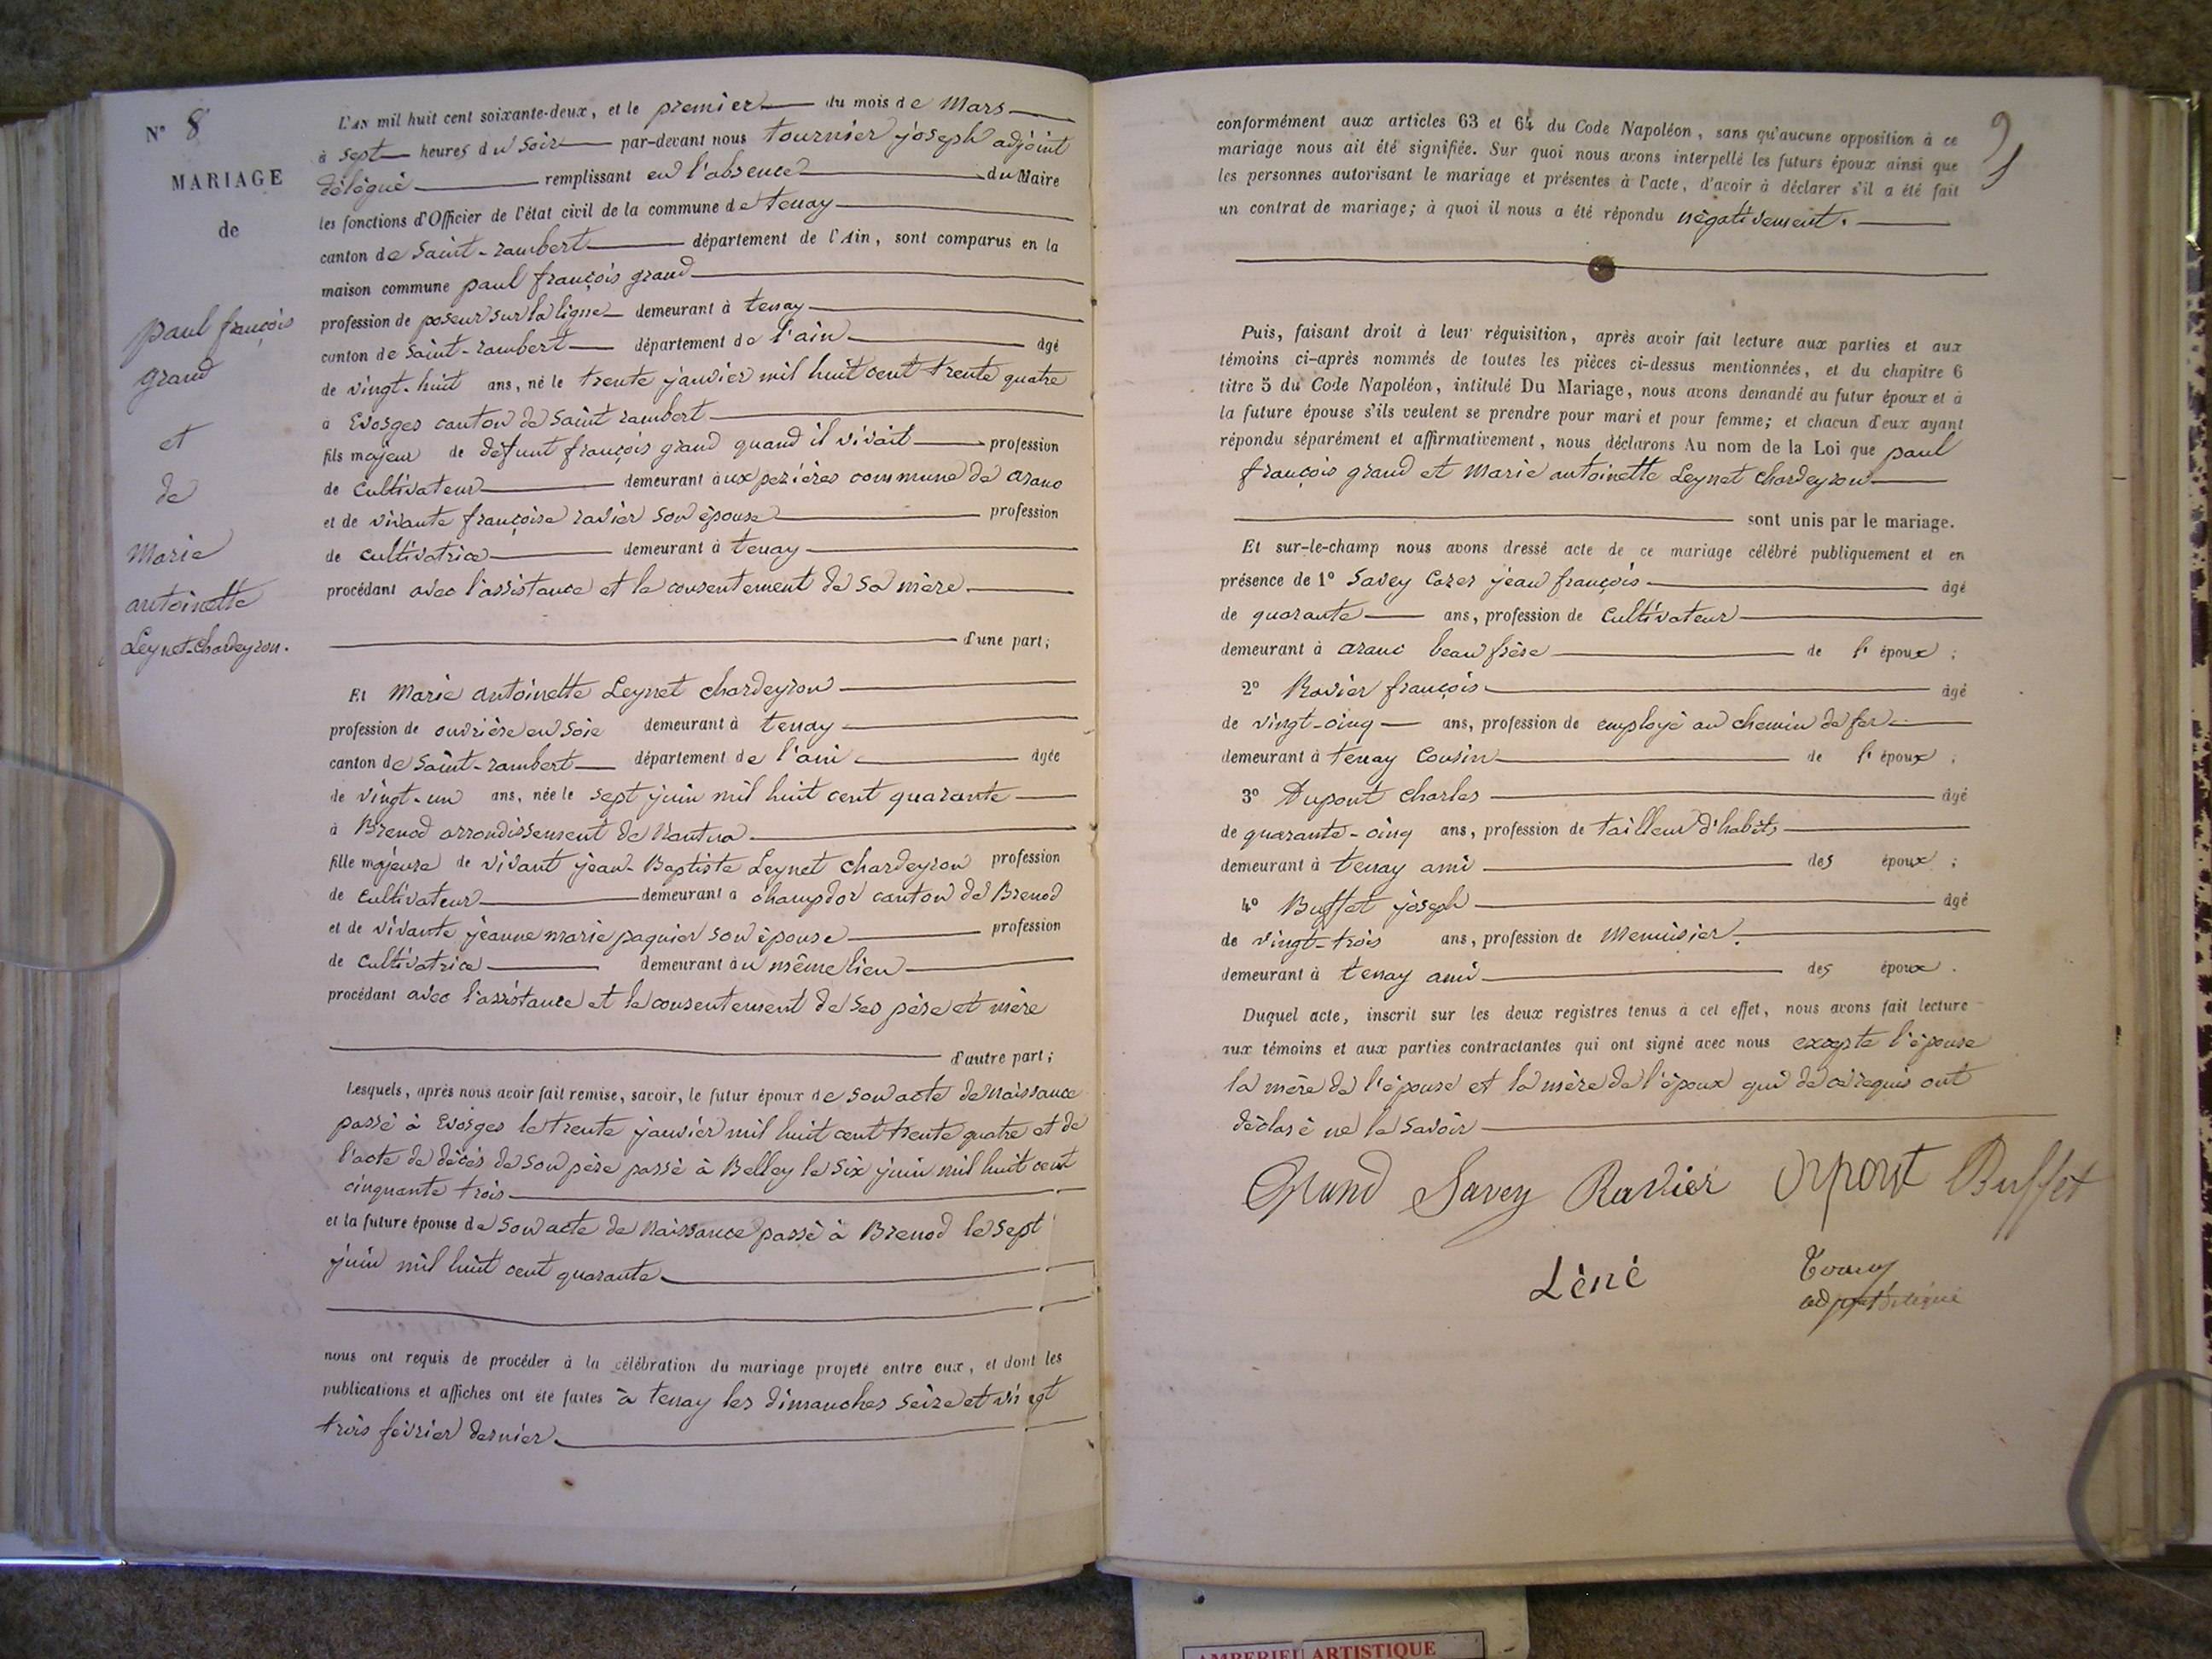 N° 8
MARIAGE
de
paul françois
grand
et
de
Marie
antoinette
Leynet-chardeyron.
L'AN mil huit cent soixante-deux, et le premier du mois de Mars
à sept heures du soir par-devant nous tournier joseph adjoint
délégué remplissant en l'absence du Maire
les fonctions d'Officier de l'état civil de la commune de tenay
canton de saint-rambert département de l'Ain, sont comparus en la
maison commune paul françois grand
profession de poseur sur la ligne demeurant à tenay
canton de saint-rambert département de l'ain âgé
de vingt-huit ans, né le trente janvier mil huit cent trente quatre
à Evosges canton de saint rambert
fils majeur de défunt françois grand quand il vivait profession
de cultivateur demeurant aux pezières commune de aranc
et de vivante françoise ravier son épouse profession
de cultivatrice demeurant à tenay
procédant avec l'assistance et le consentement de sa mère.
d'une part;
Et Marie antoinette Leynet chardeyron
profession de ouvrière en soie demeurant à tenay
canton de saint-rambert département de l'ain âgée
de vingt-un ans, née le sept juin mil huit cent quarante
à Brenod arrondissement de Nantua
fille majeure de vivant jean-Baptiste Leynet chardeyron profession
de cultivateur demeurant à champdor canton de Brenod
et de vivante jeanne marie paquier son épouse profession
de cultivatrice demeurant au même lieu
procédant avec l'assistance et le consentement de ses père et mère
d'autre part;
Lesquels, après nous avoir fait remise, savoir, le futur époux de son acte de naissance
passé à Evosges le trente janvier mil huit cent trente quatre et de
l'acte de décès de son père passé à Belley le six juin mil huit cent
cinquante trois
et la future épouse de son acte de naissance passé à Brenod le sept
juin mil huit cent quarante
nous ont requis de procéder à la célébration du mariage projeté entre eux, et dont les
publications et affiches ont été faites à tenay les dimanches seize et vingt
trois février dernier
9
conformément aux articles 63 et 64 du Code Napoléon, sans qu'aucune opposition à ce
mariage nous ait été signifiée. Sur quoi nous avons interpellé les futurs époux ainsi que
les personnes autorisant le mariage et présentes à l'acte, d'avoir à déclarer s'il a été fait
un contrat de mariage; à quoi il nous a été répondu négativement.
Puis, faisant droit à leur réquisition, après avoir fait lecture aux parties et aux
témoins ci-après nommés de toutes les pièces ci-dessus mentionnées, et du chapitre 6
titre 5 du Code Napoléon, intitulé Du Mariage, nous avons demandé au futur époux et à
la future épouse s'ils veulent se prendre pour mari et pour femme; et chacun d'eux ayant
répondu séparément et affirmativement, nous déclarons Au nom de la Loi que paul
françois grand et Marie antoinette Leynet chardeyron
sont unis par le mariage.
Et sur-le-champ nous avons dressé acte de ce mariage célébré publiquement et en
présence de 1° Savey Cazer jean françois âgé
de quarante ans, profession de cultivateur
demeurant à aranc beau frère de l' époux ;
2° Ravier françois âgé
de vingt-cinq ans, profession de employé au chemin de fer
demeurant à tenay Cousin de l' époux ;
3° Dupont Charles âgé
de quarante-cinq ans, profession de tailleur d'habits
demeurant à tenay ami des époux ;
4° Buffet joseph âgé
de vingt-trois ans, profession de Menuisier.
demeurant à tenay ami des époux .
Duquel acte, inscrit sur les deux registres tenus à cet effet, nous avons fait lecture
aux témoins et aux parties contractantes qui ont signé avec nous excepte l'épouse
la mère de l'épouse et la mère de l'époux qui de ce requis ont
déclaré ne le savoir
Grand Savey Ravier Dupont Buffet
Léné
adjoint délégué
AMBERIEU ARTISTIQUE